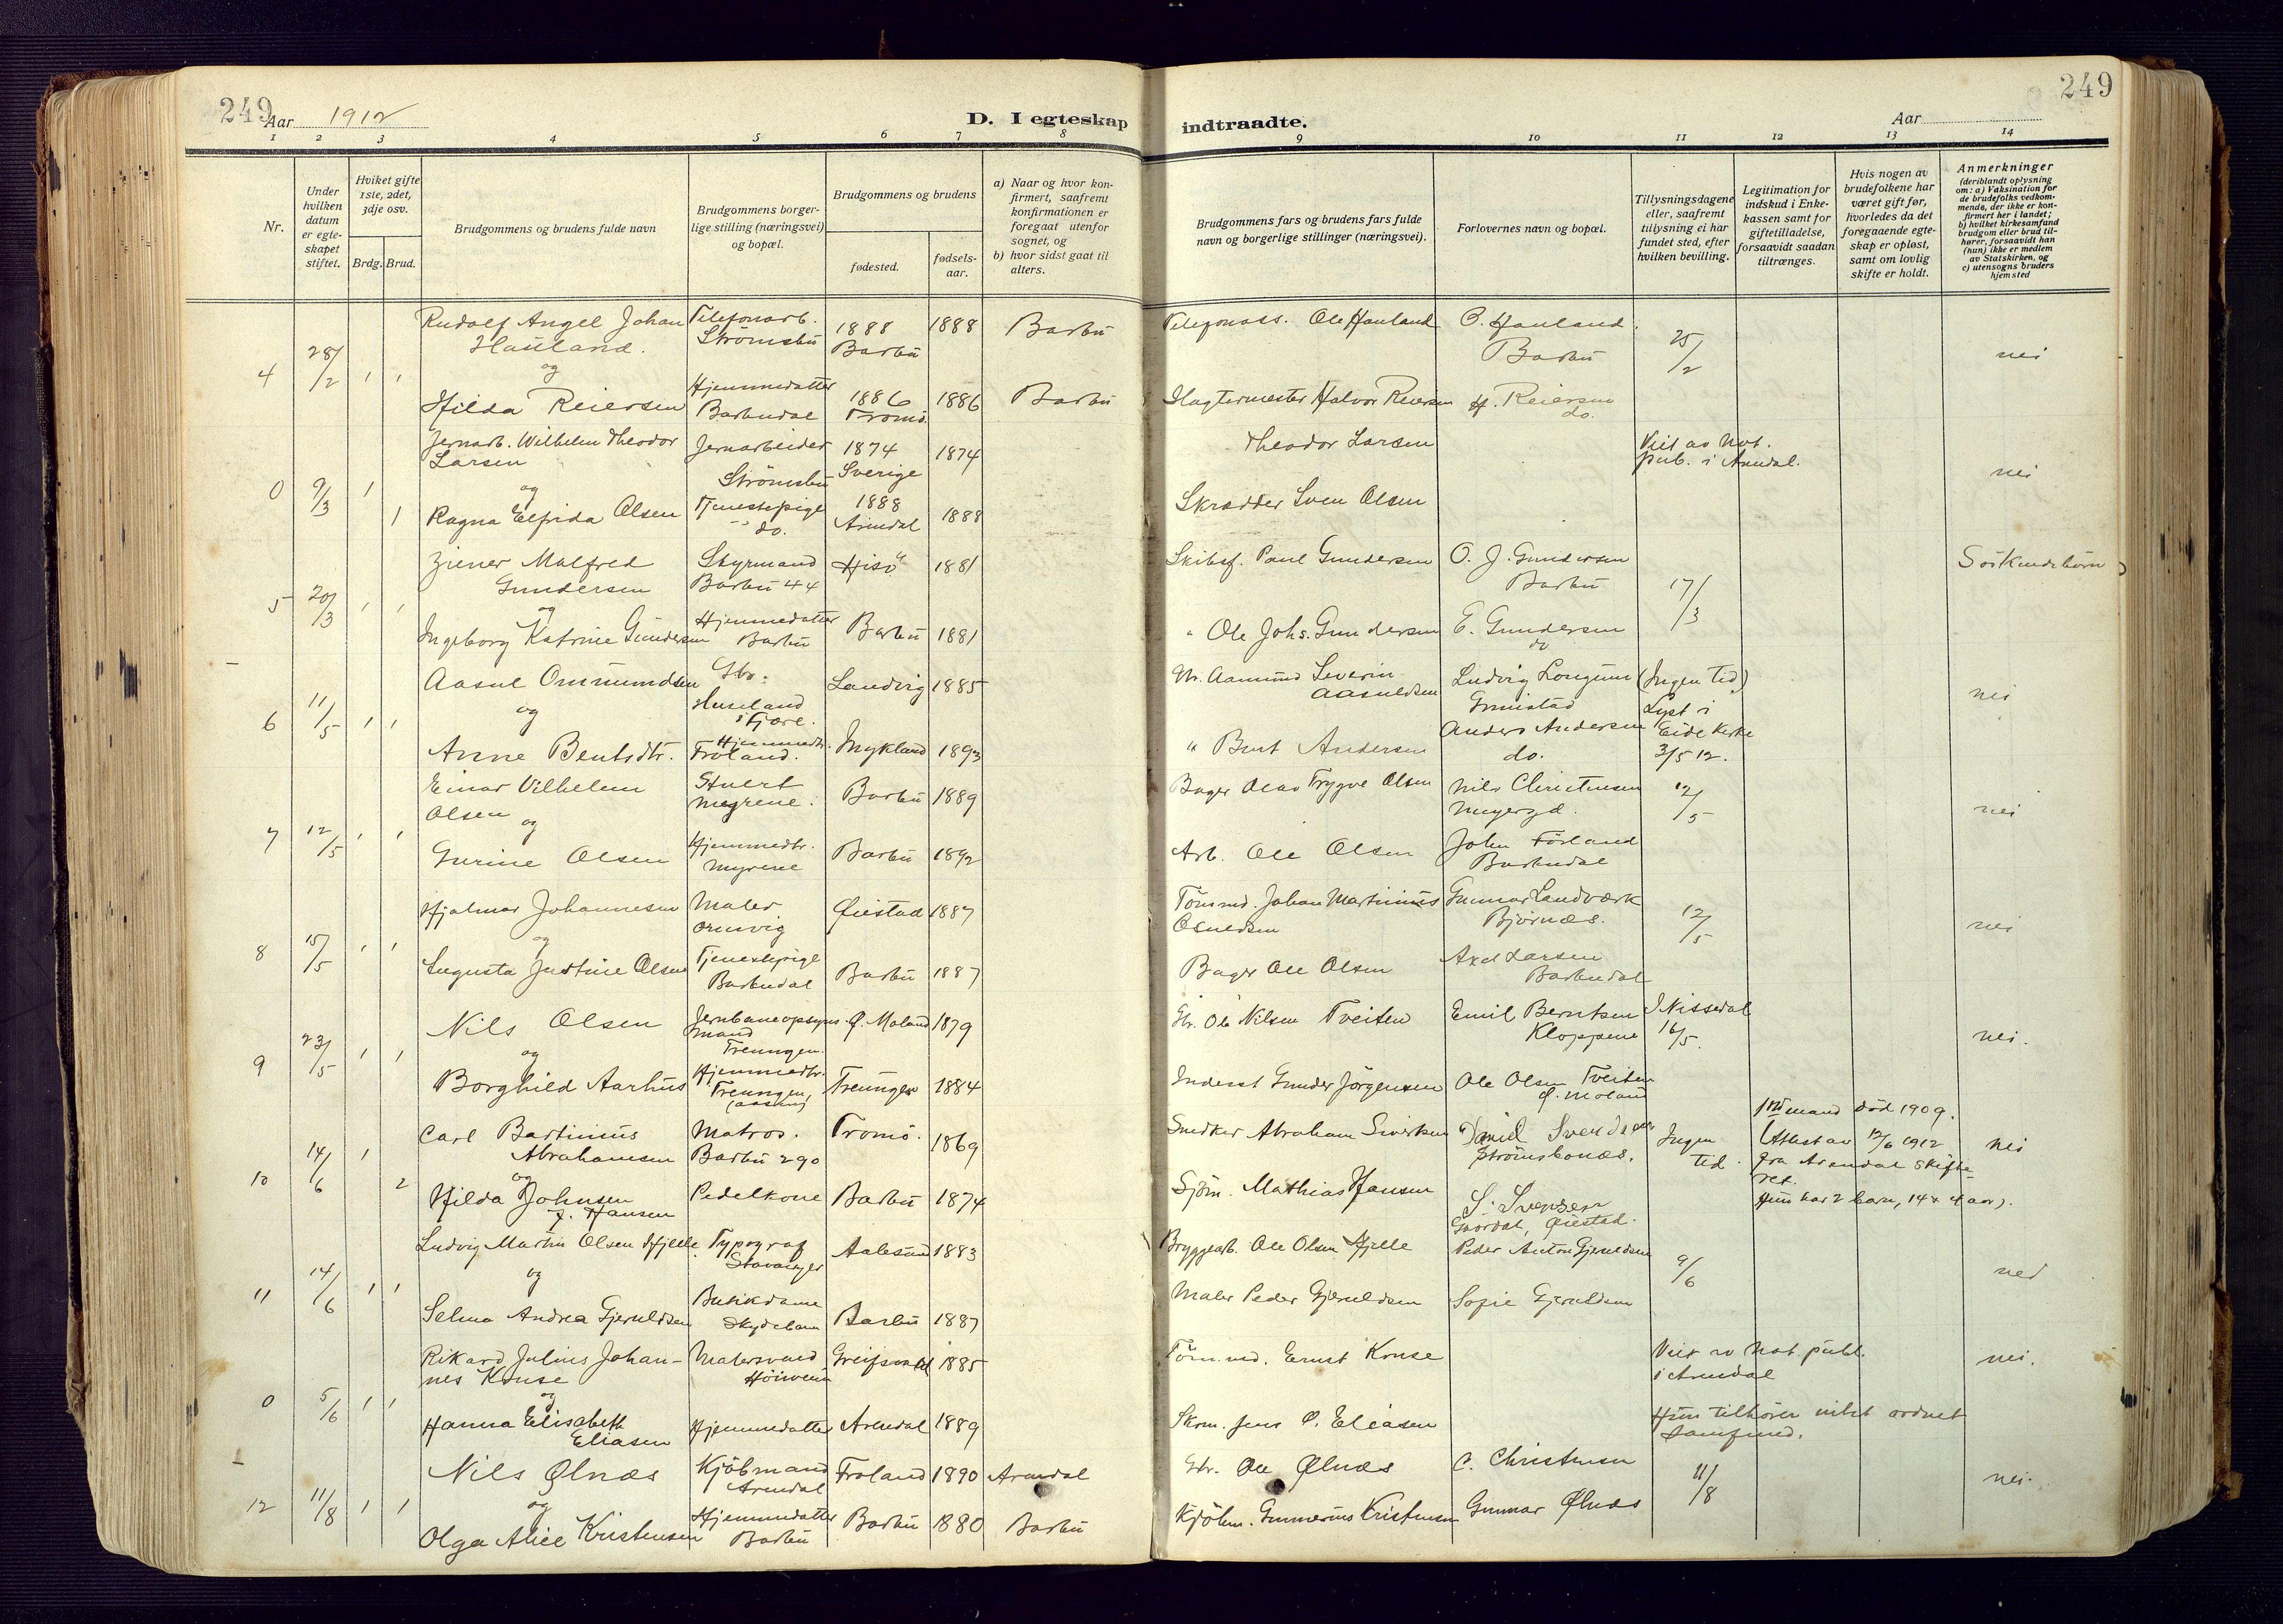 249
Aar 1912
D. I egteskap
1 2 3 4 5 6 7 8
Nr.
Under hvilken datum er egteskapet stiftet.
Hviket gifte 1ste, 2det, 3dje osv.
Brdg. Brud.
Brudgommens og brudens fulde navn
Brudgommens borgerlige stilling (næringsvei) og bopæl.
Brudgommens og brudens
fødested.
fødselsaar.
a) Naar og hvor konfirmert, saafremt konfirmationen er foregaat utenfor sognet, og
b) hvor sidst gaat til alters.
4 28/2 1 1
Rudolf Angel Johan Telefonarb. 1888 1888 Barbu
Hauland. Strömsbu Barbu
og
Hjemmedatter
Hilda Reiersen Barbudal 1886 Tromö. 1886 Barbu
Jernarb. Wilhelm Theodor Jernarbeider 1874 1874
Larsen Strömsbu Sverige
0 9/3 1
og
1 Ragna Elfrida Olsen Tjenestepige do. 1888 Arendal 1888
Ziener Malfred Styrmand Hisö 1881
Gundersen Barbu 44
5 20/3 1 1
og
Ingeborg Katrine Gundersen Hjemmedatter Barbu Barbu 1881
Aasul Ommundsen Gbr. Landvig 1885
Huseland i Fjære.
6 11/5 1 1
og
Anne Bentsdtr. Hjemmedtr. Froland. Mykland 1893
Einar Vilhelm Stuert Barbu 1889
Olsen Myrene.
7 12/5 1 1
og
Gurine Olsen Hjemmedtr. Myrene Barbu 1892
Hjalmar Johannesen Maler Øiestad 1887
Ormvig
8 15/5 1 1
og
Augusta Justine Olsen Tjenestepige Barbudal Barbu 1887
Nils Olsen Jernbaneopsynsmand Treungen. Ø. Moland 1879
9 23/5 1 1
og
Borghild Aarhus Hjemmedtr. Treungen, Treungen 1884
Carl Bartinius Matros. Tromö. 1869
Abrahamsen Barbu 290
10 14/6 1 2
og
Hilda Johnsen Pedelkone Barbu 1874
f. Hansen
Ludvig Martin Olsen Hjelle. Typograf Stavanger Aalesund 1883
11 14/6 1 1
og
Selma Andrea Gjeruldsen Butikdame Skydebane Barbu 1887
Rikard Julius Johan- Malersvend Greifswald 1885
nes Kruse
0 5/6 1 1
og
Hanna Elisabeth Hjemmedatter Arendal 1889
Eliasen
Nils Ølnæs Kjöbmand Arendal Froland 1890 Arendal
12 11/8 1 1
og
Olga Alice Kristensen Hjemmedatter Barbu Barbu 1880 Barbu
249
indtraadte.
Aar
9 10 11 12 13 14
Brudgommens fars og brudens fars fulde navn og borgerlige stillinger (næringsvei).
Forlovernes navn og bopæl.
Tillysningsdagene eller, saafremt tillysning ei har fundet sted, efter hvilken bevilling.
Legitimation for indskud i Enkekassen samt for giftetilladelse, forsaavidt saadan tiltrænges.
Hvis nogen av brudefolkene har været gift før, hvorledes da det foregaaende egteskap er opløst, samt om lovlig skifte er holdt.
Anmerkninger (deriblandt oplysning om: a) Vaksination for de brudefolks vedkommende, der ikke er konfirmert her i landet; b) hvilket kirkesamfund brudgom eller brud tilhører, forsaavidt han (hun) ikke er medlem av Statskirken, og c) utensogns bruders hjemsted
Telefonass. Ole Hauland O. Hauland Barbu 25/2 nei
Slagtermester Halvor Reiersen H. Reiersen do.
Theodor Larsen Viet av Not. pub. i Arendal. nei
Skrædder Sven Olsen
Skibsf. Paul Gundersen O. J. Gundersen Barbu 17/3 Söskendebörn
" Ole Johs. Gundersen E. Gundersen do
Gbr. Aamund Severin Aasuldsen Ludvig Longum Grimstad (Ingen tid) nei
Lyst i Eide Kirke 3/5 12.
" Bent Andersen Anders Andersen do.
Bager Olav Trygve Olsen Nils Christensen 12/5 nei
Arb. Ole Olsen John Förland Barbudal
Tömmd. Johan Martinius Gunnar Landværk Björnæs. 12/5 nei
Osuldsen
Bager Ole Olsen Axel Larsen Barbudal
Gbr. Ole Nilsen Tveiten Emil Berntsen Kloppene I Nissedal 16/5. nei.
Inderst Gunder Jörgensen Ole Olsen Tveiten Ø. Moland
Snedker Abraham Siverksen Daniel Svendsen Strömsbonæs. Ingen tid. nei
1ste mand död 1909.
Attest av 12/6 1912
fra Arendal Skifteret.
Hun har 2 barn, 14 x 4 aar).
Sjöm. Mathias Hansen S. Svensen Öiestad.
Bryggearb. Ole Olsen Hjelle Peder Anton Gjeruldsen 9/6 nei
Maler Peder Gjeruldsen Sofie Gjeruldsen
Tömmd. Ernst Kruse Viet av Not. publ. i Arendal nei.
Skom. Jens O. Eliasen Hun tilhörer intet ordnet samfund.
Gbr. Ole Ølnæs C. Christensen 11/8 nei.
Kjöbm. Gunnerius Kristensen Gunnar Ølnæs